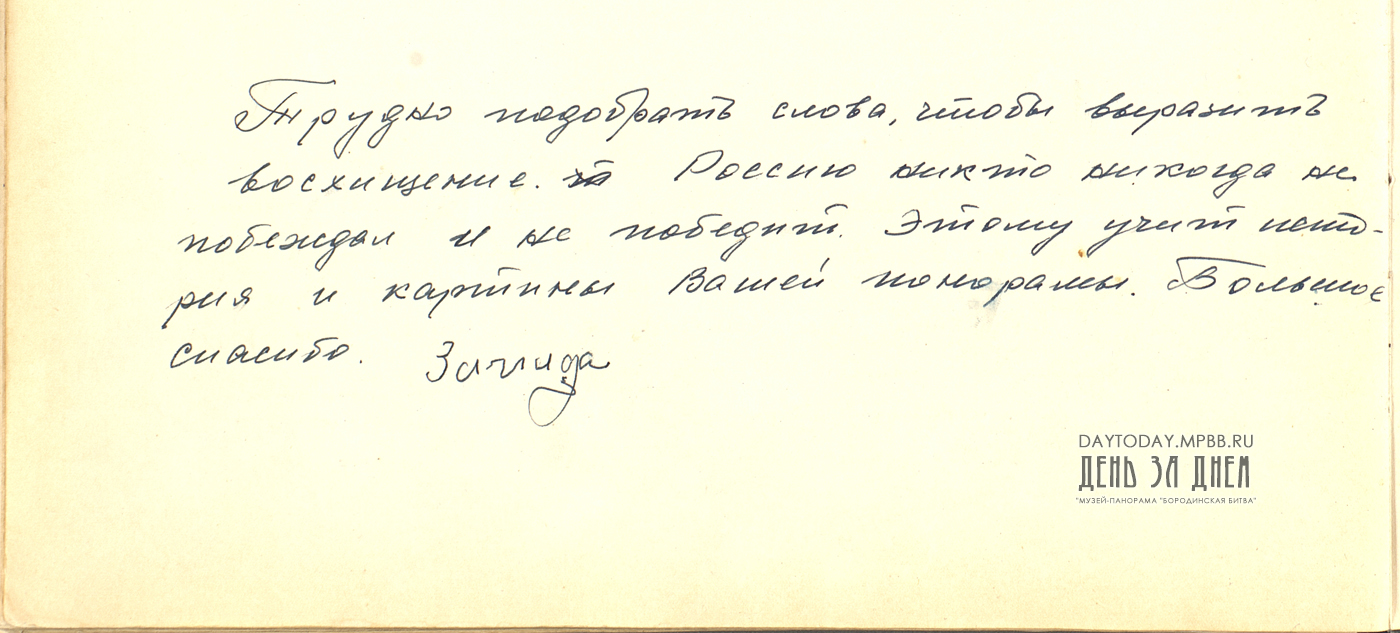 Трудно подобрать слова, чтобы выразить
восхищение. Россию никто никогда не
побеждал и не победит. Этому учит исто-
рия и картины Вашей понорамы. Большое
спасибо.
DAYTODAY.MPBB.RU
ДЕНЬ ЗА ДНЕМ
"МУЗЕЙ-ПАНОРАМА "БОРОДИНСКАЯ БИТВА"